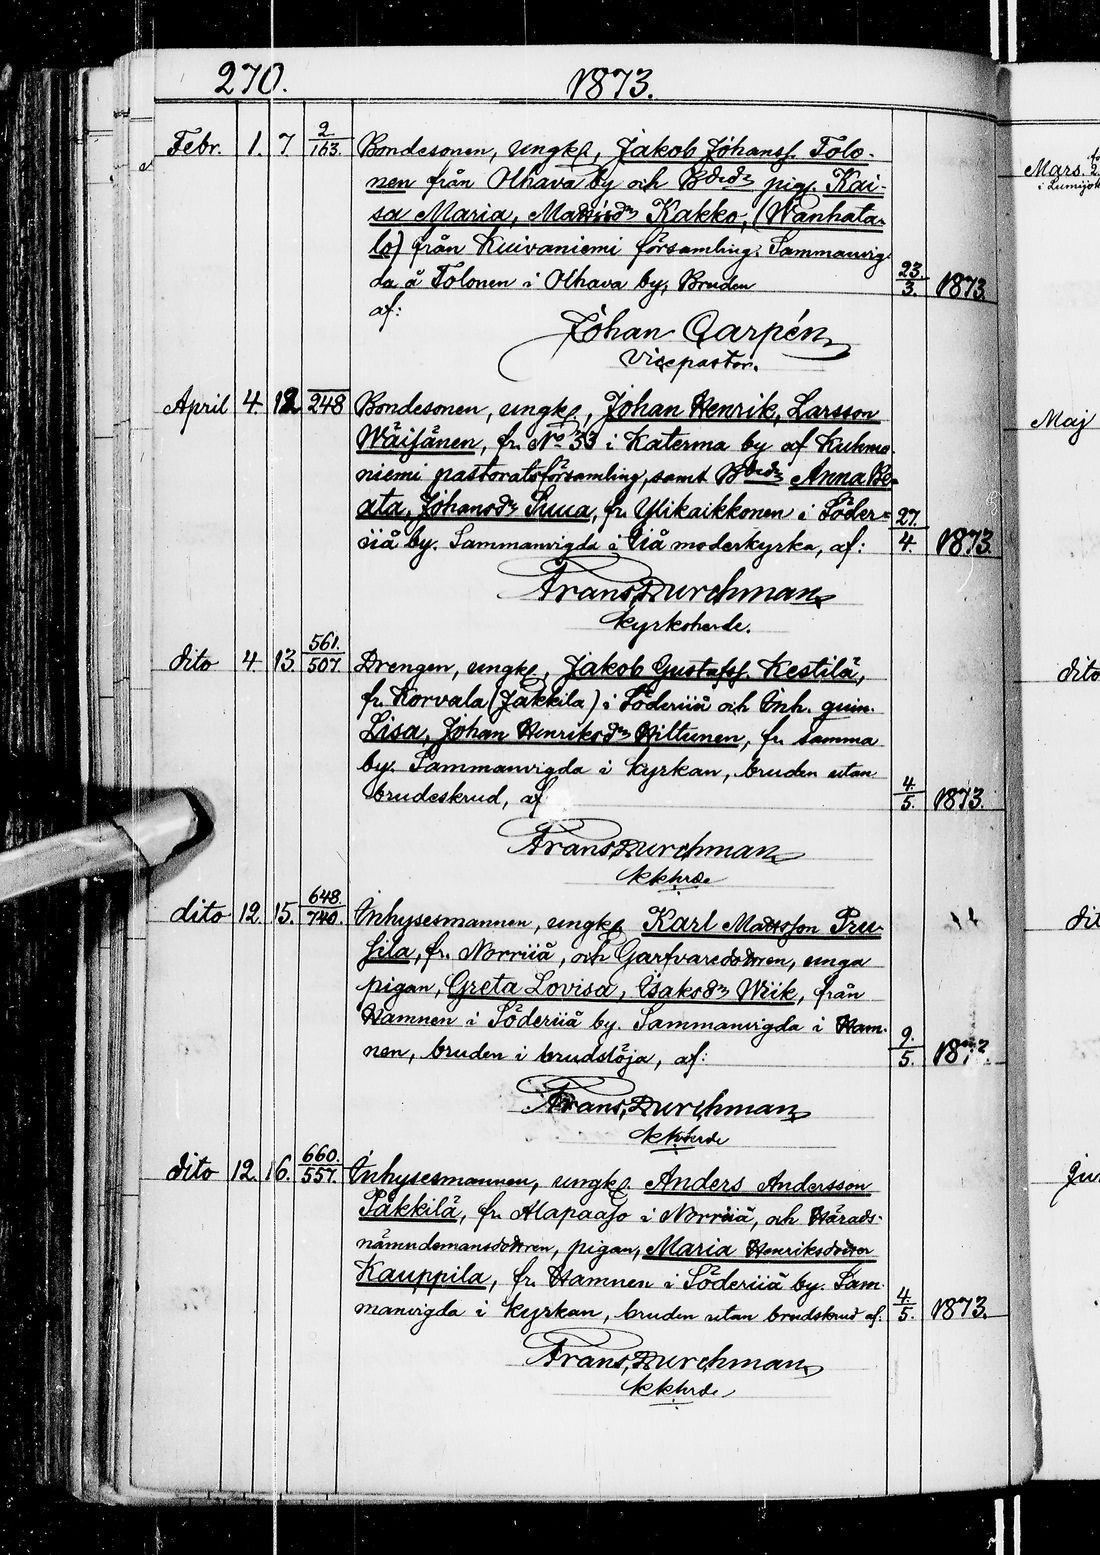 270. 1873.
Febr. 1. 7. 2/163. Bondesonen, ungk., Jakob Johanss. Tolo-
nen från Olhava by och Bdedr pig. Kai-
sa Maria, Mattsdr Kakko, (Wanhata-
lo) från Kuivaniemi församling. Sammanvig-
da å Tolonen i Olhava by, Bruden 23./3. 1873.
af:
Johan Carpén
Vicepastor.
April 4. 12 248 Bondesonen, ungk., Johan Henrik, Larsson
Wäisänen, fr. No 33 i Katerma by af Kuhmo-
niemi pastoratsförsamling, samt Bdedr Anna Be-
ata, Johansdr Suua, fr. Ylikaikkonen i Söder= 27./4. 1873.
iiå by. Sammanvigda i Iiå moderkyrka, af:
Frans Durchman
Kyrkoherde.
dito 4. 13. 561./507. Drengen, ungk., Jakob Gustafss. Kestilä,
fr. Korvala (Jakkila) i Söderiiå och Inh. quin.
Lisa, Johan Henriksdr Hiltunen, fr. samma
by. Sammanvigda i kyrkan, bruden utan 4./5. 1873.
brudeskrud, af
Frans Durchman
kkhrde
dito 12 15. 648./740. Inhysesmannen, ungk. Karl Mattsson Pru-
sila, fr. Norriiå, och Garfvaredottren, unga
pigan, Greta Lovisa, Isaksdr Wiik, från
Hamnen i Söderiiå by. Sammanvigda i Ham- 9./5. 1873.
nen, bruden i brudslöja, af:
Frans Durchman
kkherde
dito 12. 16. 660./557. Inhysesmannen, ungk. Anders Andersson
Pakkilä, fr. Alapaaso i Norriiå, och Härads-
nämndemansdottren, pigan, Maria Henriksdotter
Kauppila, fr. Hamnen i Söderiiå by. Sam- 4./5. 1873.
manvigda i kyrkan, bruden utan brudskrud af:
Frans Durchman
kkhrde
Mars. 2
i Lumijok
Maj
dito
dit
Jun